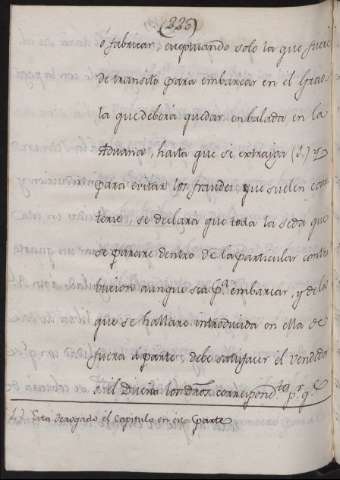 (226)
o fabricar, exceptuando solo la que fuere
de transito para embarcar en el Grao
la que deberá quedar enbalada en la
Aduana, hasta que se extraiga (1.) Y
para evitar los fraudes que suelen come
terse se declara que toda la seda que
se parare dentro de la particular contri
bucion aunque sea p.ª embarcar, y de la
que se hallare introducida en ella de
fuera aparte, debe satisfacer el Vendedor
o el Dueño los Dros. correspond.tes p.r q.e
(1.) Esta derogado el capitulo en esta parte